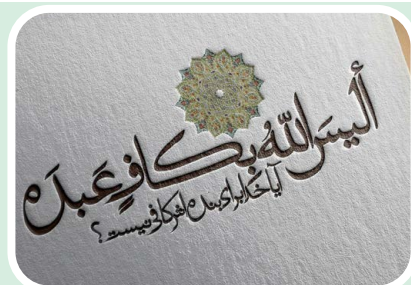 أَلَيسَ اللّهُ بِكافٍ عَبدَه
آیا خدا برای بنده اش کافی نیست؟